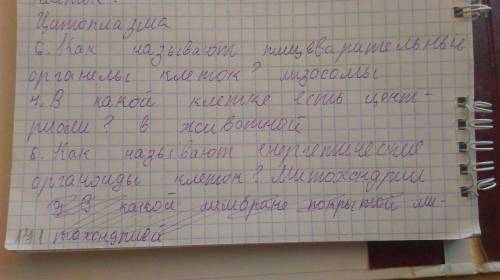 Цитоплазма
6. Как называют пищеварительные
органелы клеток? лизосомы
7. В какой клетке есть цент-
риоли? в животной
8. Как называют енергетические
органоиды клеток? Митохондрии
9. В какой мембране покрытой ми-
тохондрией